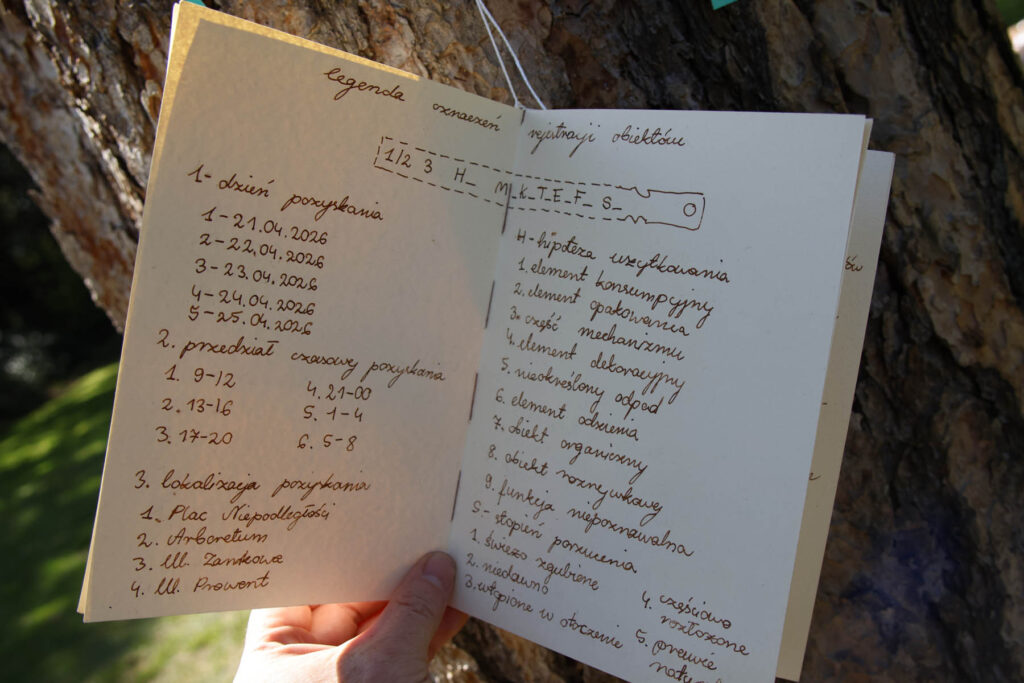 legenda oznaczeń rejestracji obiektów
1/2 3 H_ M_K_T_E_F_ S_ O
1- dzień pozyskania
1-21.04.2026
2-22.04.2026
3-23.04.2026
4-24.04.2026
5-25.04.2026
2. przedział czasowy pozyskania
1. 9-12
2. 13-16
3. 17-20
4. 21-00
5. 1-4
6. 5-8
3. lokalizacja pozyskania
1. Plac Niepodległości
2. Arboretum
3. Ul. Zamkowa
4. Ul. Prowent
H-hipoteza użytkowania
1. element konsumpcyjny
2. element opakowania
3. część mechanizmu
4. element dekoracyjny
5. nieokreślony odpad
6. element odzienia
7. obiekt organiczny
8. obiekt rozrywkowy
9. funkcja niepoznawalna
S- stopień porzucenia
1. świeżo zgubione
2. niedawno
3. wtopione w otoczenie
4. częściowo
rozłożone
5. prawie